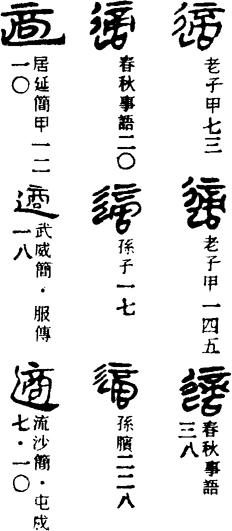 適
老子甲七三
適
老子甲一四五
適
春秋事語
三八
適
春秋事語二〇
適
孫子一七
適
孫臏二二八
適
居延簡甲一二
一〇
適
武威簡·服傳
一八
適
流沙簡·屯戍
七·一〇